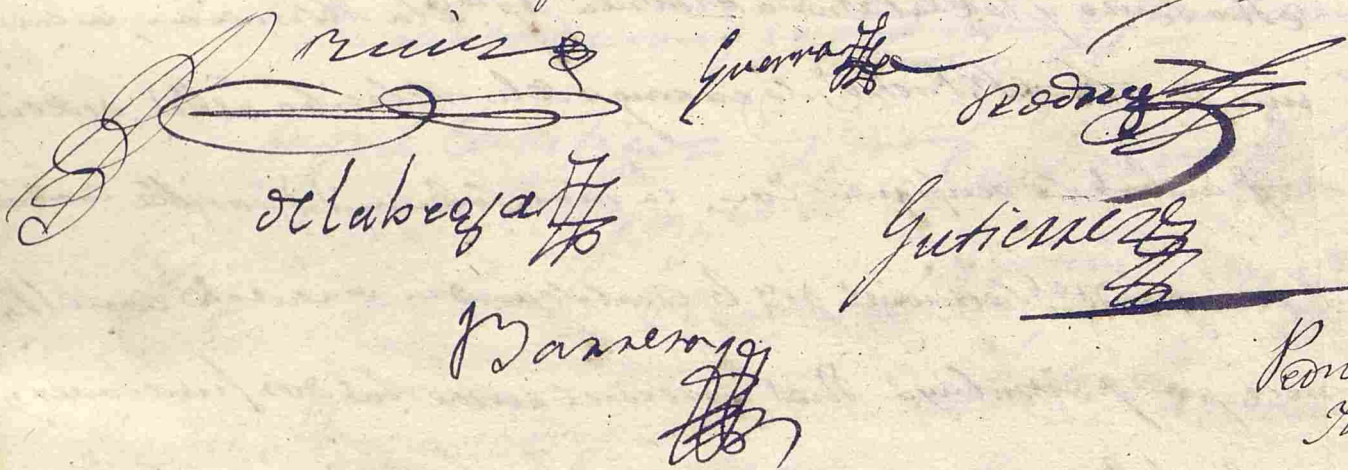 Ruiz Guerra Rodrig
delabega Gutierrez
Barrera
Pedr